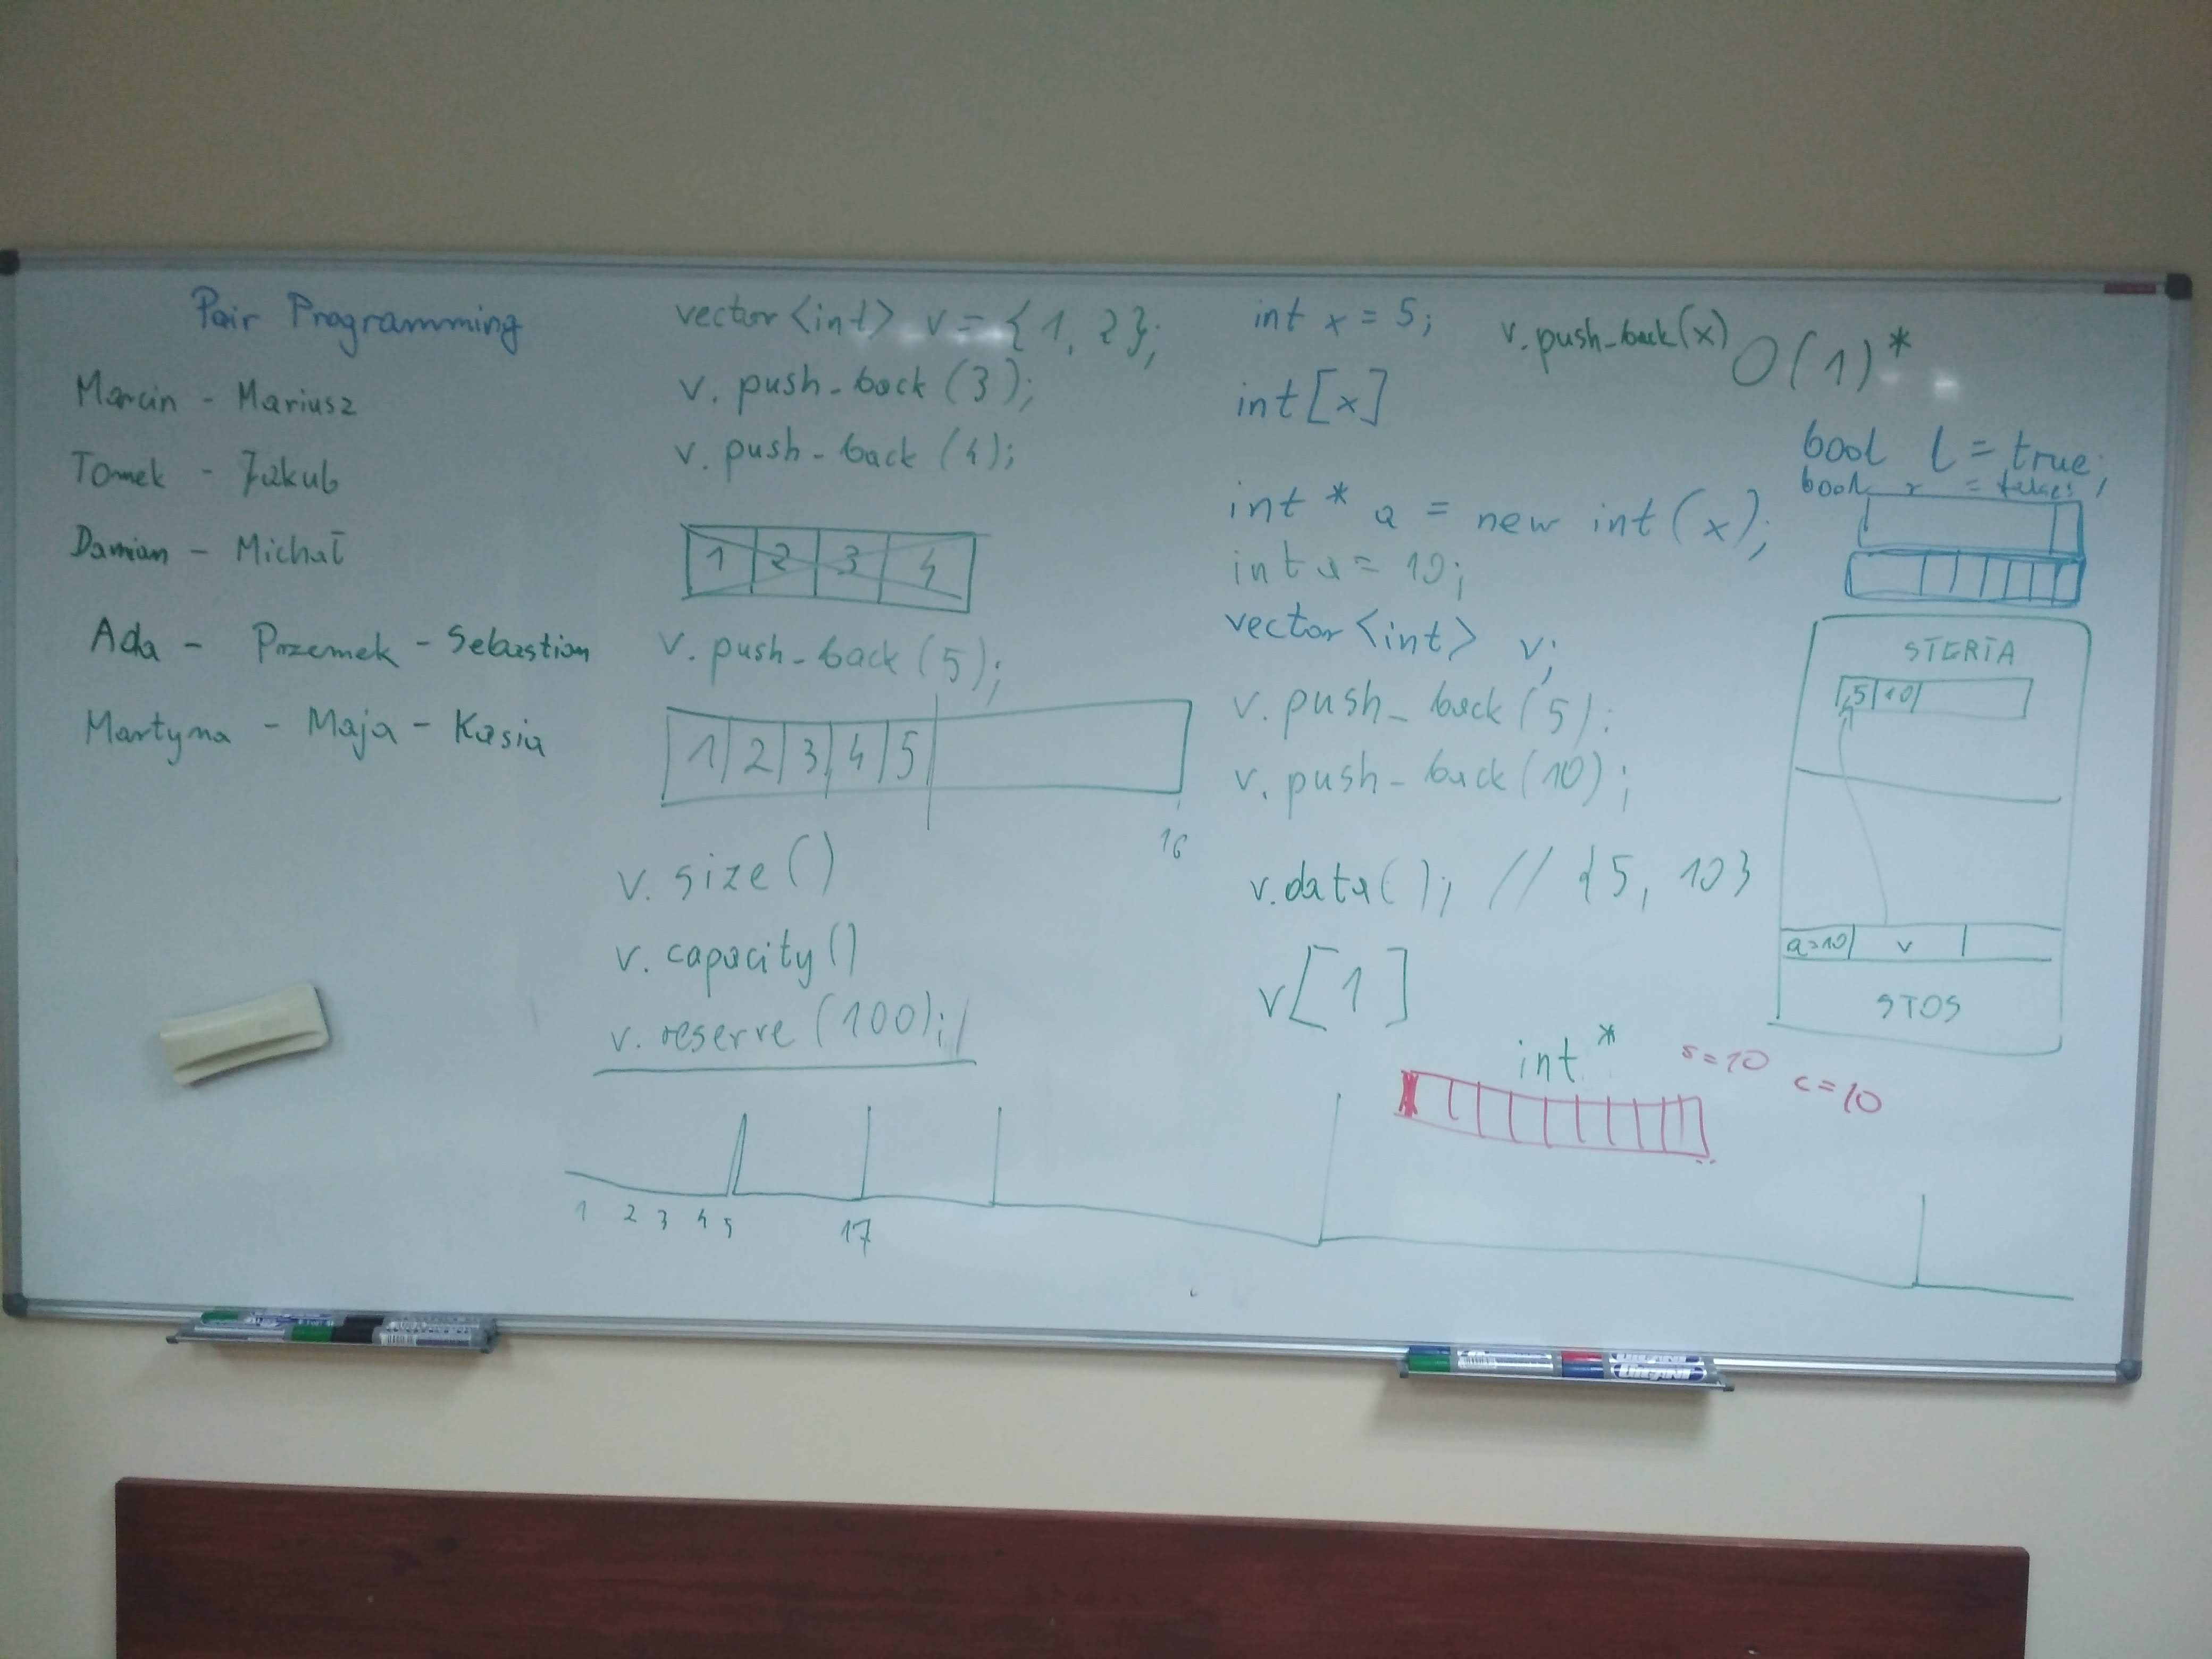 Pair Programming
Marcin - Mariusz
Tomek - Jakub
Damian - Michał
Ada - Przemek - Sebastian
Martyna - Maja - Kasia
vector <int> v = {1, 2};
v. push_back (3);
v. push_back (4);
1 2 3 4
v. push_back (5);
1 2 3 4 5
16
v. size ()
v. capacity ()
v. reserve (100);
1 2 3 4 5 17
int x = 5;
int [x]
int * a = new int (x);
int a = 10;
vector <int> v;
v. push_back (5);
v. push_back (10);
v.data(); // {5, 10}
v[1]
int *
s=10 c=10
v.push_back(x) O(1)*
bool l = true;
bool = false;
STERTA
5 10
a=10 v
STOS